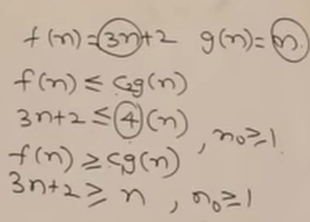 f(n)=3n+2 g(n)=n
f(n) ≤ c₂g(n)
3n+2 ≤ 4(n)
, n₀≥1
f(n) ≥ c₁g(n)
3n+2 ≥ n , n₀≥1